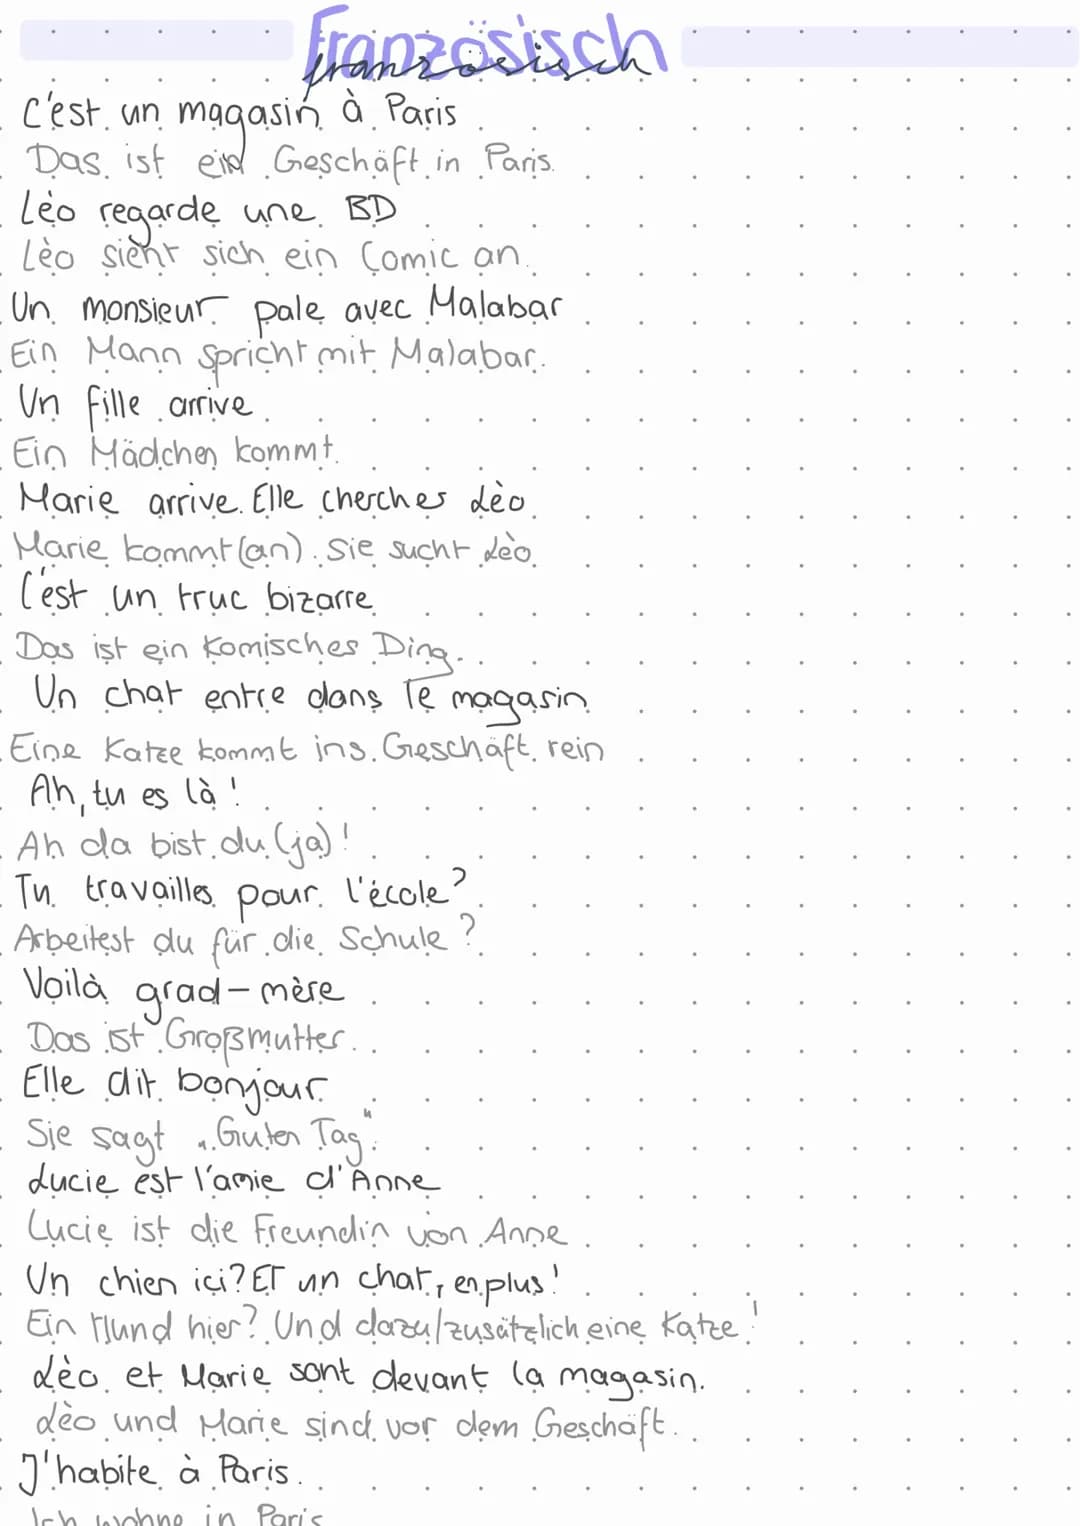 Französisch
französisch
C'est un magasin à Paris
Das ist ein Geschäft in Paris.
Lèo regarde une BD
Lèo sieht sich ein Comic an.
Un monsieur pale avec Malabar
Ein Mann spricht mit Malabar.
Un fille arrive
Ein Mädchen kommt.
Marie arrive. Elle cherches Lèo.
Marie kommt (an). Sie sucht Lèo.
C'est un truc bizarre
Das ist ein Komisches Ding.
Un chat entre dans le magasin
Eine Katze kommt ins Geschäft rein
Ah, tu es là !
Ah da bist du (ja) !
Tu travailles pour l'école ?
Arbeitest du für die Schule ?
Voilà grad-mère
Das ist Großmutter.
Elle dit bonjour
Sie sagt „Guten Tag“.
Lucie est l'amie d'Anne
Lucie ist die Freundin von Anne
Un chien ici? Et un chat, en plus!
Ein Hund hier? Und dazu/zusätzlich eine Katze!
Lèo et Marie sont devant la magasin.
Lèo und Marie sind vor dem Geschäft.
J'habite à Paris.
Ich wohne in Paris